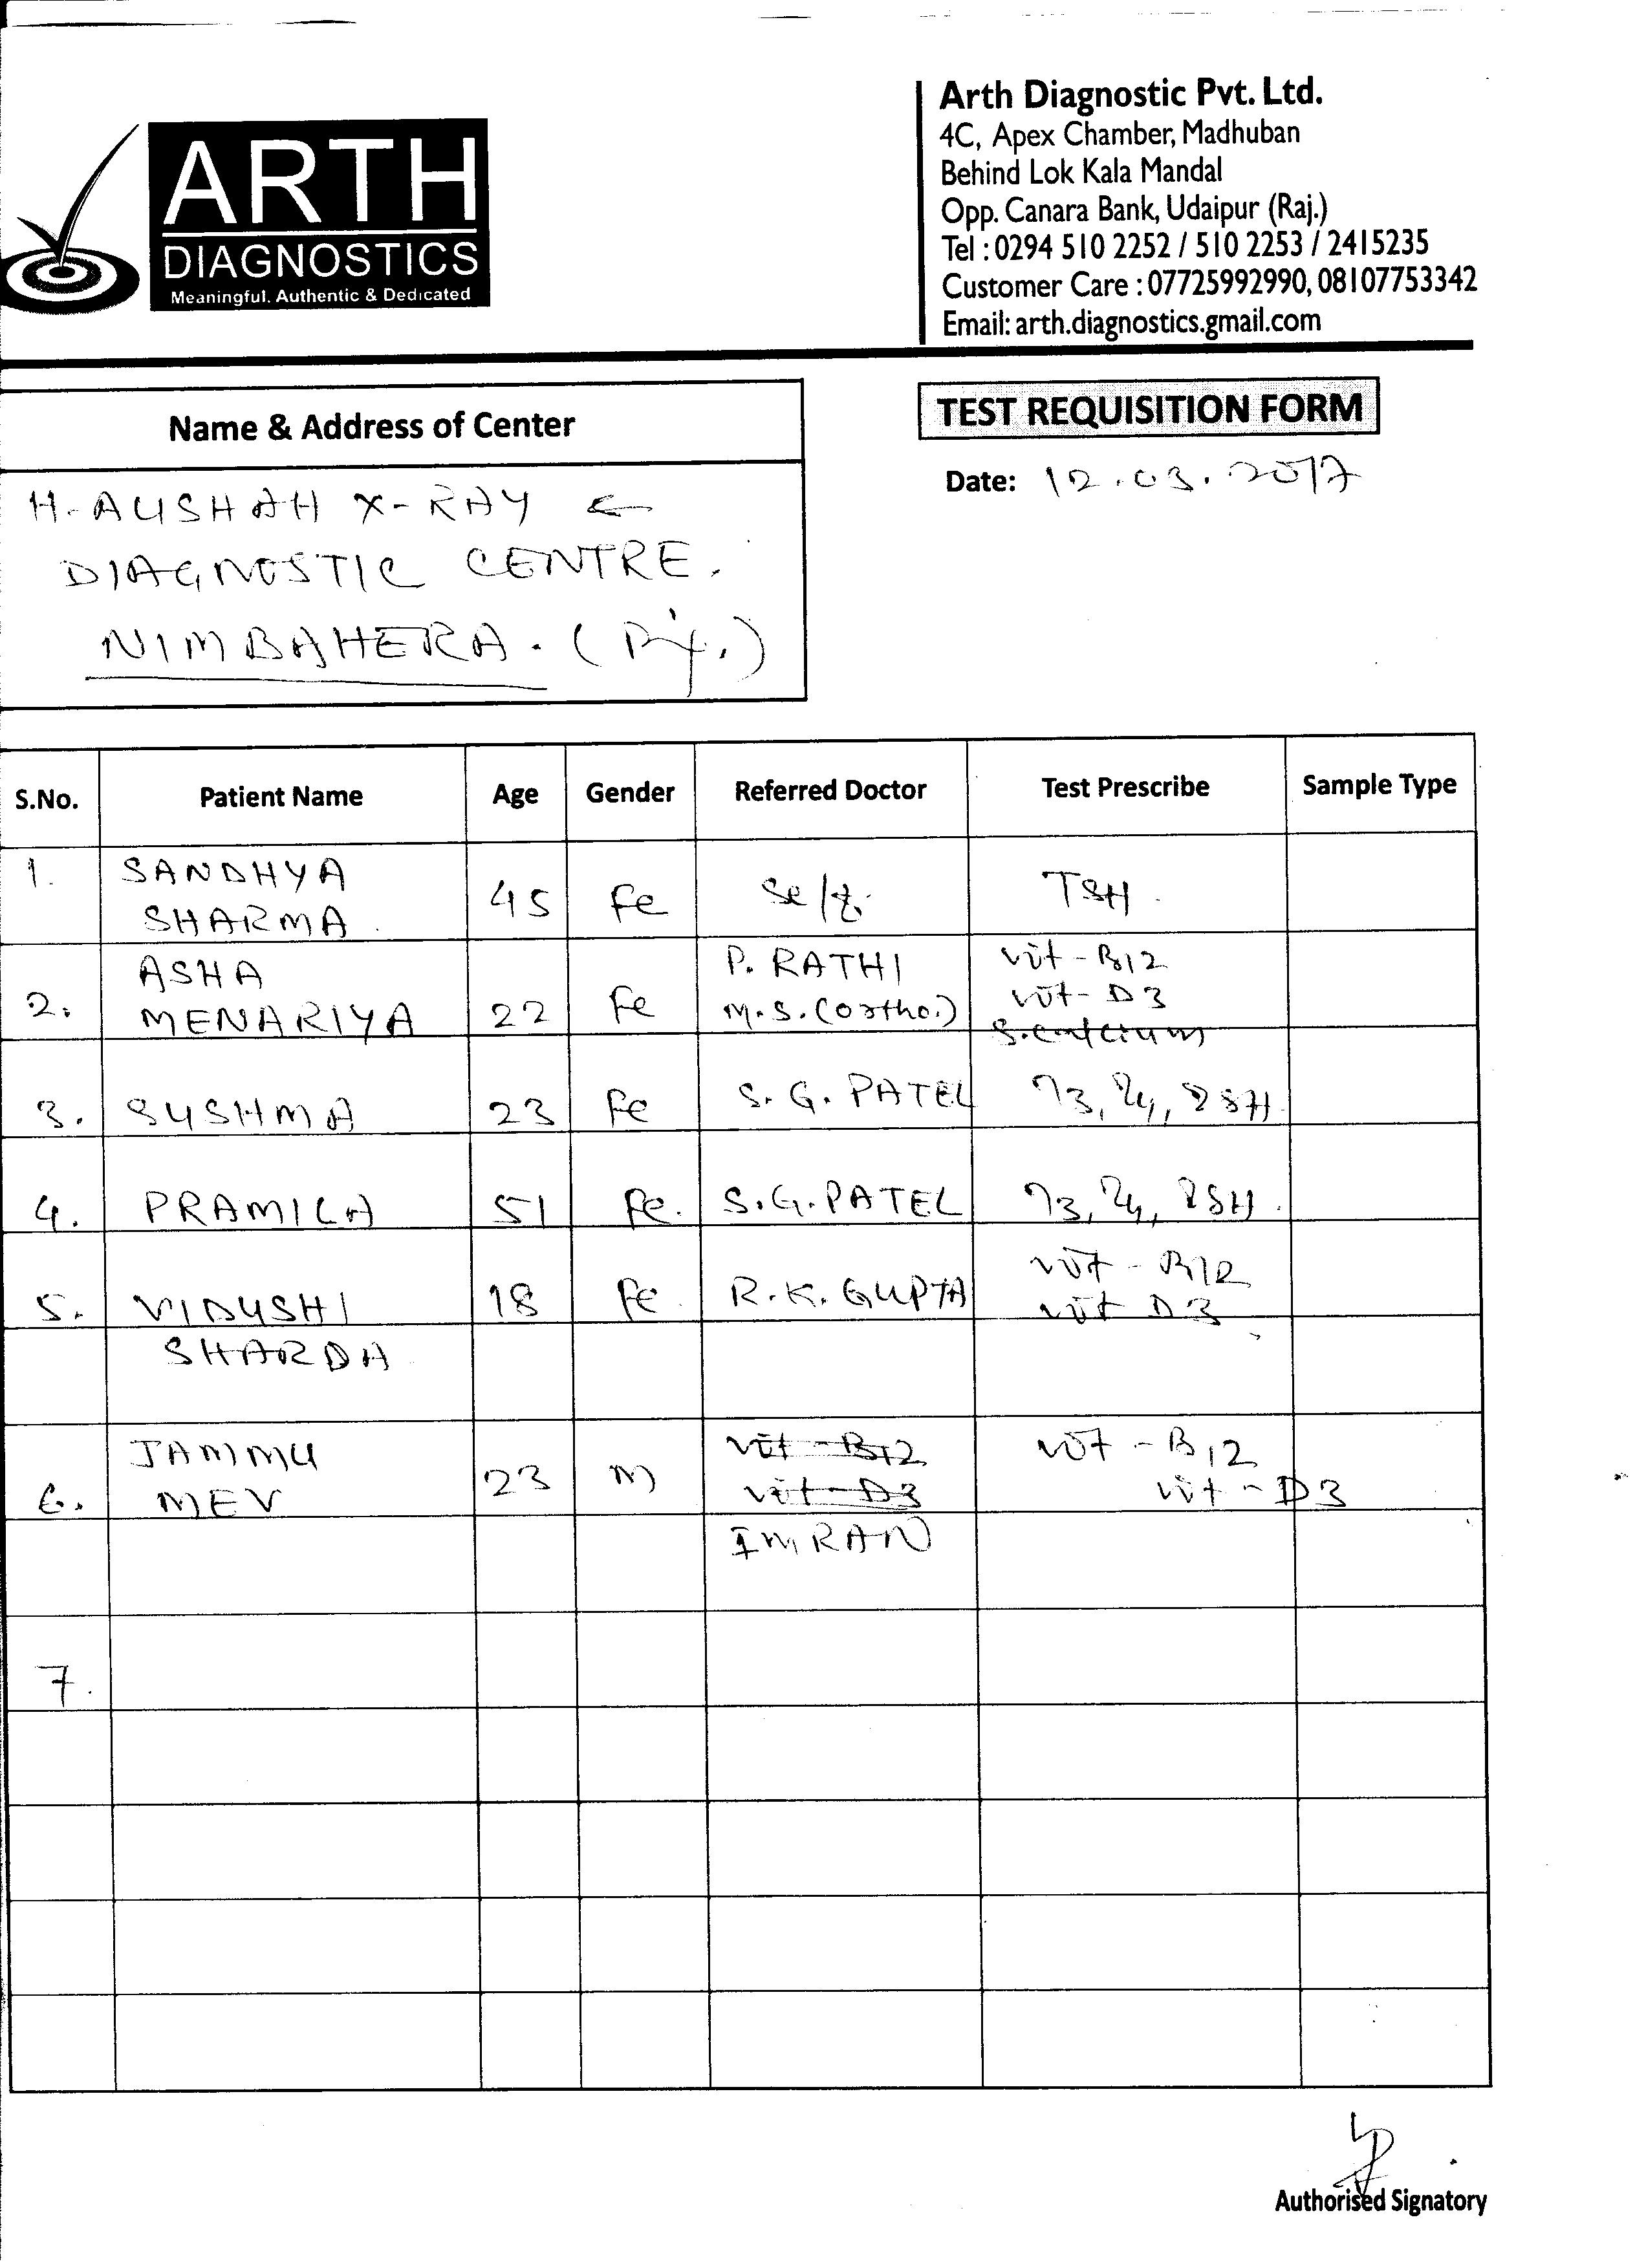 ARTH
DIAGNOSTICS
Meaningful. Authentic & Dedicated
Arth Diagnostic Pvt. Ltd.
4C, Apex Chamber, Madhuban
Behind Lok Kala Mandal
Opp. Canara Bank, Udaipur (Raj.)
Tel : 0294 510 2252 / 510 2253 / 2415235
Customer Care : 07725992990, 08107753342
Email: arth.diagnostics.gmail.com
Name & Address of Center
H-AUSHAH X-RAY
DIAGNOSTIC CENTRE.
NIMBAHERA.
TEST REQUISITION FORM
Date: 12.03.2017
S.No. Patient Name Age Gender Referred Doctor Test Prescribe Sample Type
1. SANDHYA SHARMA 45 Fe self. TSH.
2. ASHA MENARIYA 22 Fe P. RATHI M.S. (ortho.) vit-B12 vit-D3 S.calcium
3. SUSHMA 23 Fe S. G. PATEL T3, T4, TSH
4. PRAMILA 51 Fe. S.G. PATEL T3, T4, TSH.
5. VIDUSHI SHARDA 18 Fe. R.K. GUPTA vit-B12 vit D3
6. JAMMU MEV 23 M vit-B12 vit-D3 IMRAN vit-B12 vit-D3
7.
Authorised Signatory